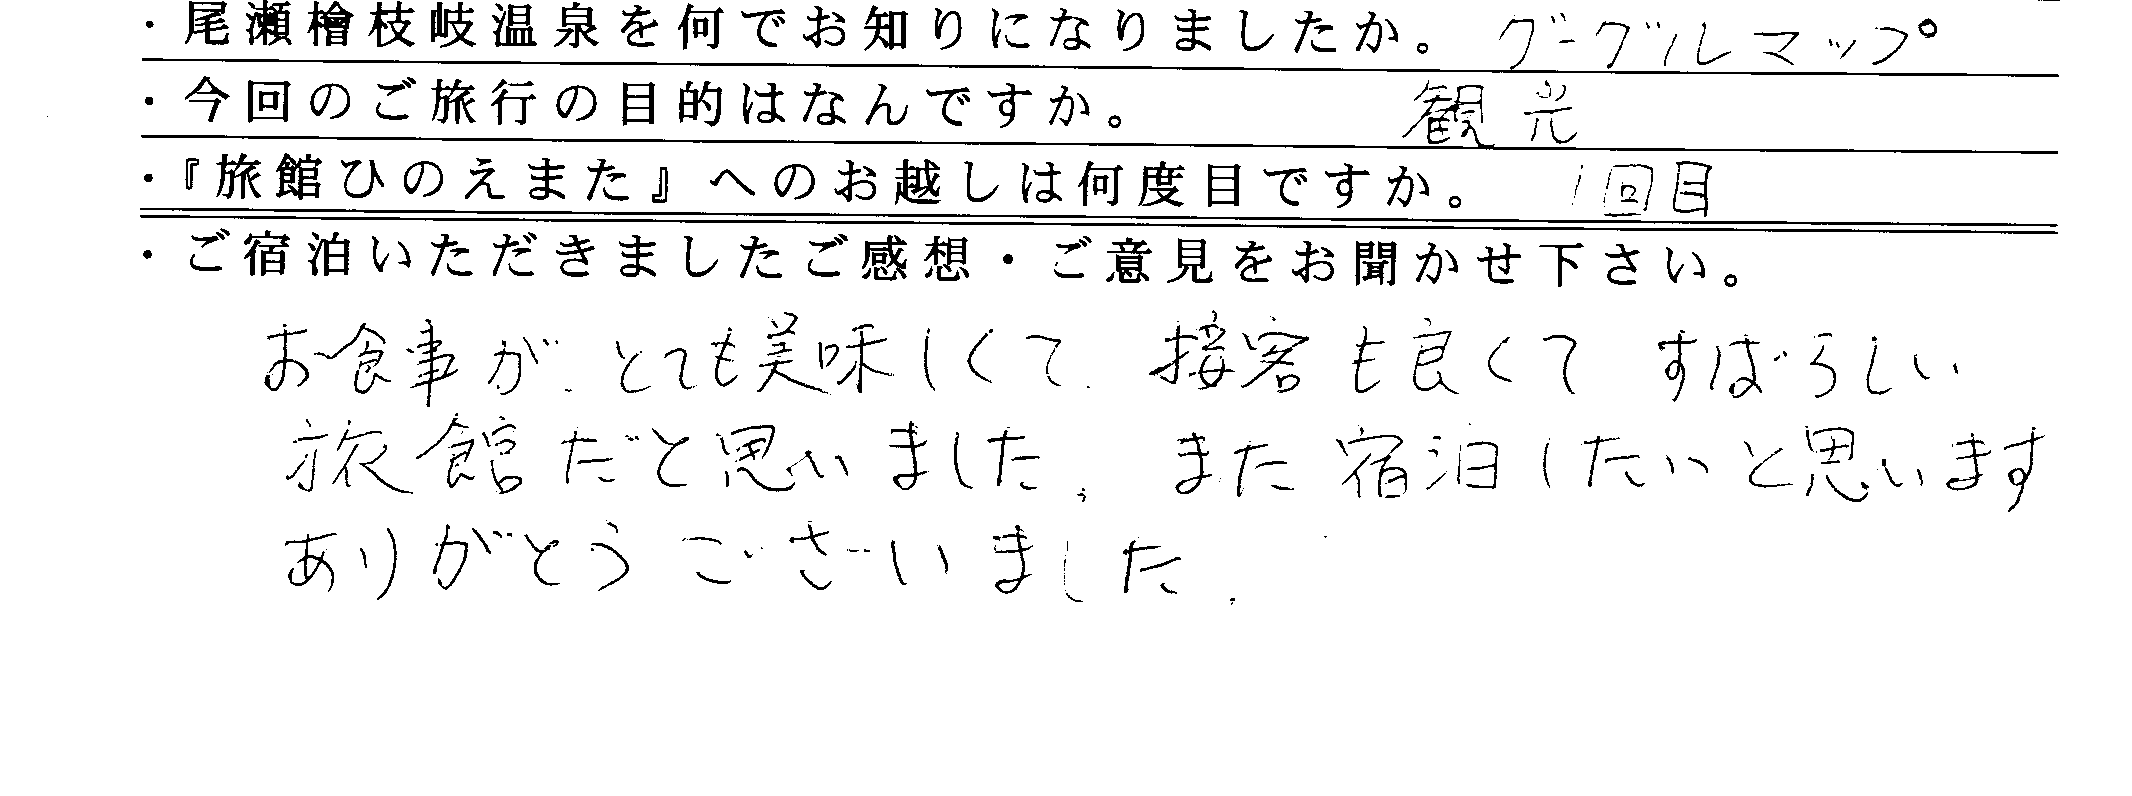 ・尾瀬檜枝岐温泉を何でお知りになりましたか。 グーグルマップ
・今回のご旅行の目的はなんですか。 観光
・『旅館ひのえまた』へのお越しは何度目ですか。 1回目
・ご宿泊いただきましたご感想・ご意見をお聞かせ下さい。
お食事が、とても美味しくて、接客も良くて すばらしい
旅館だと思いました。また宿泊したいと思います
ありがとうございました。